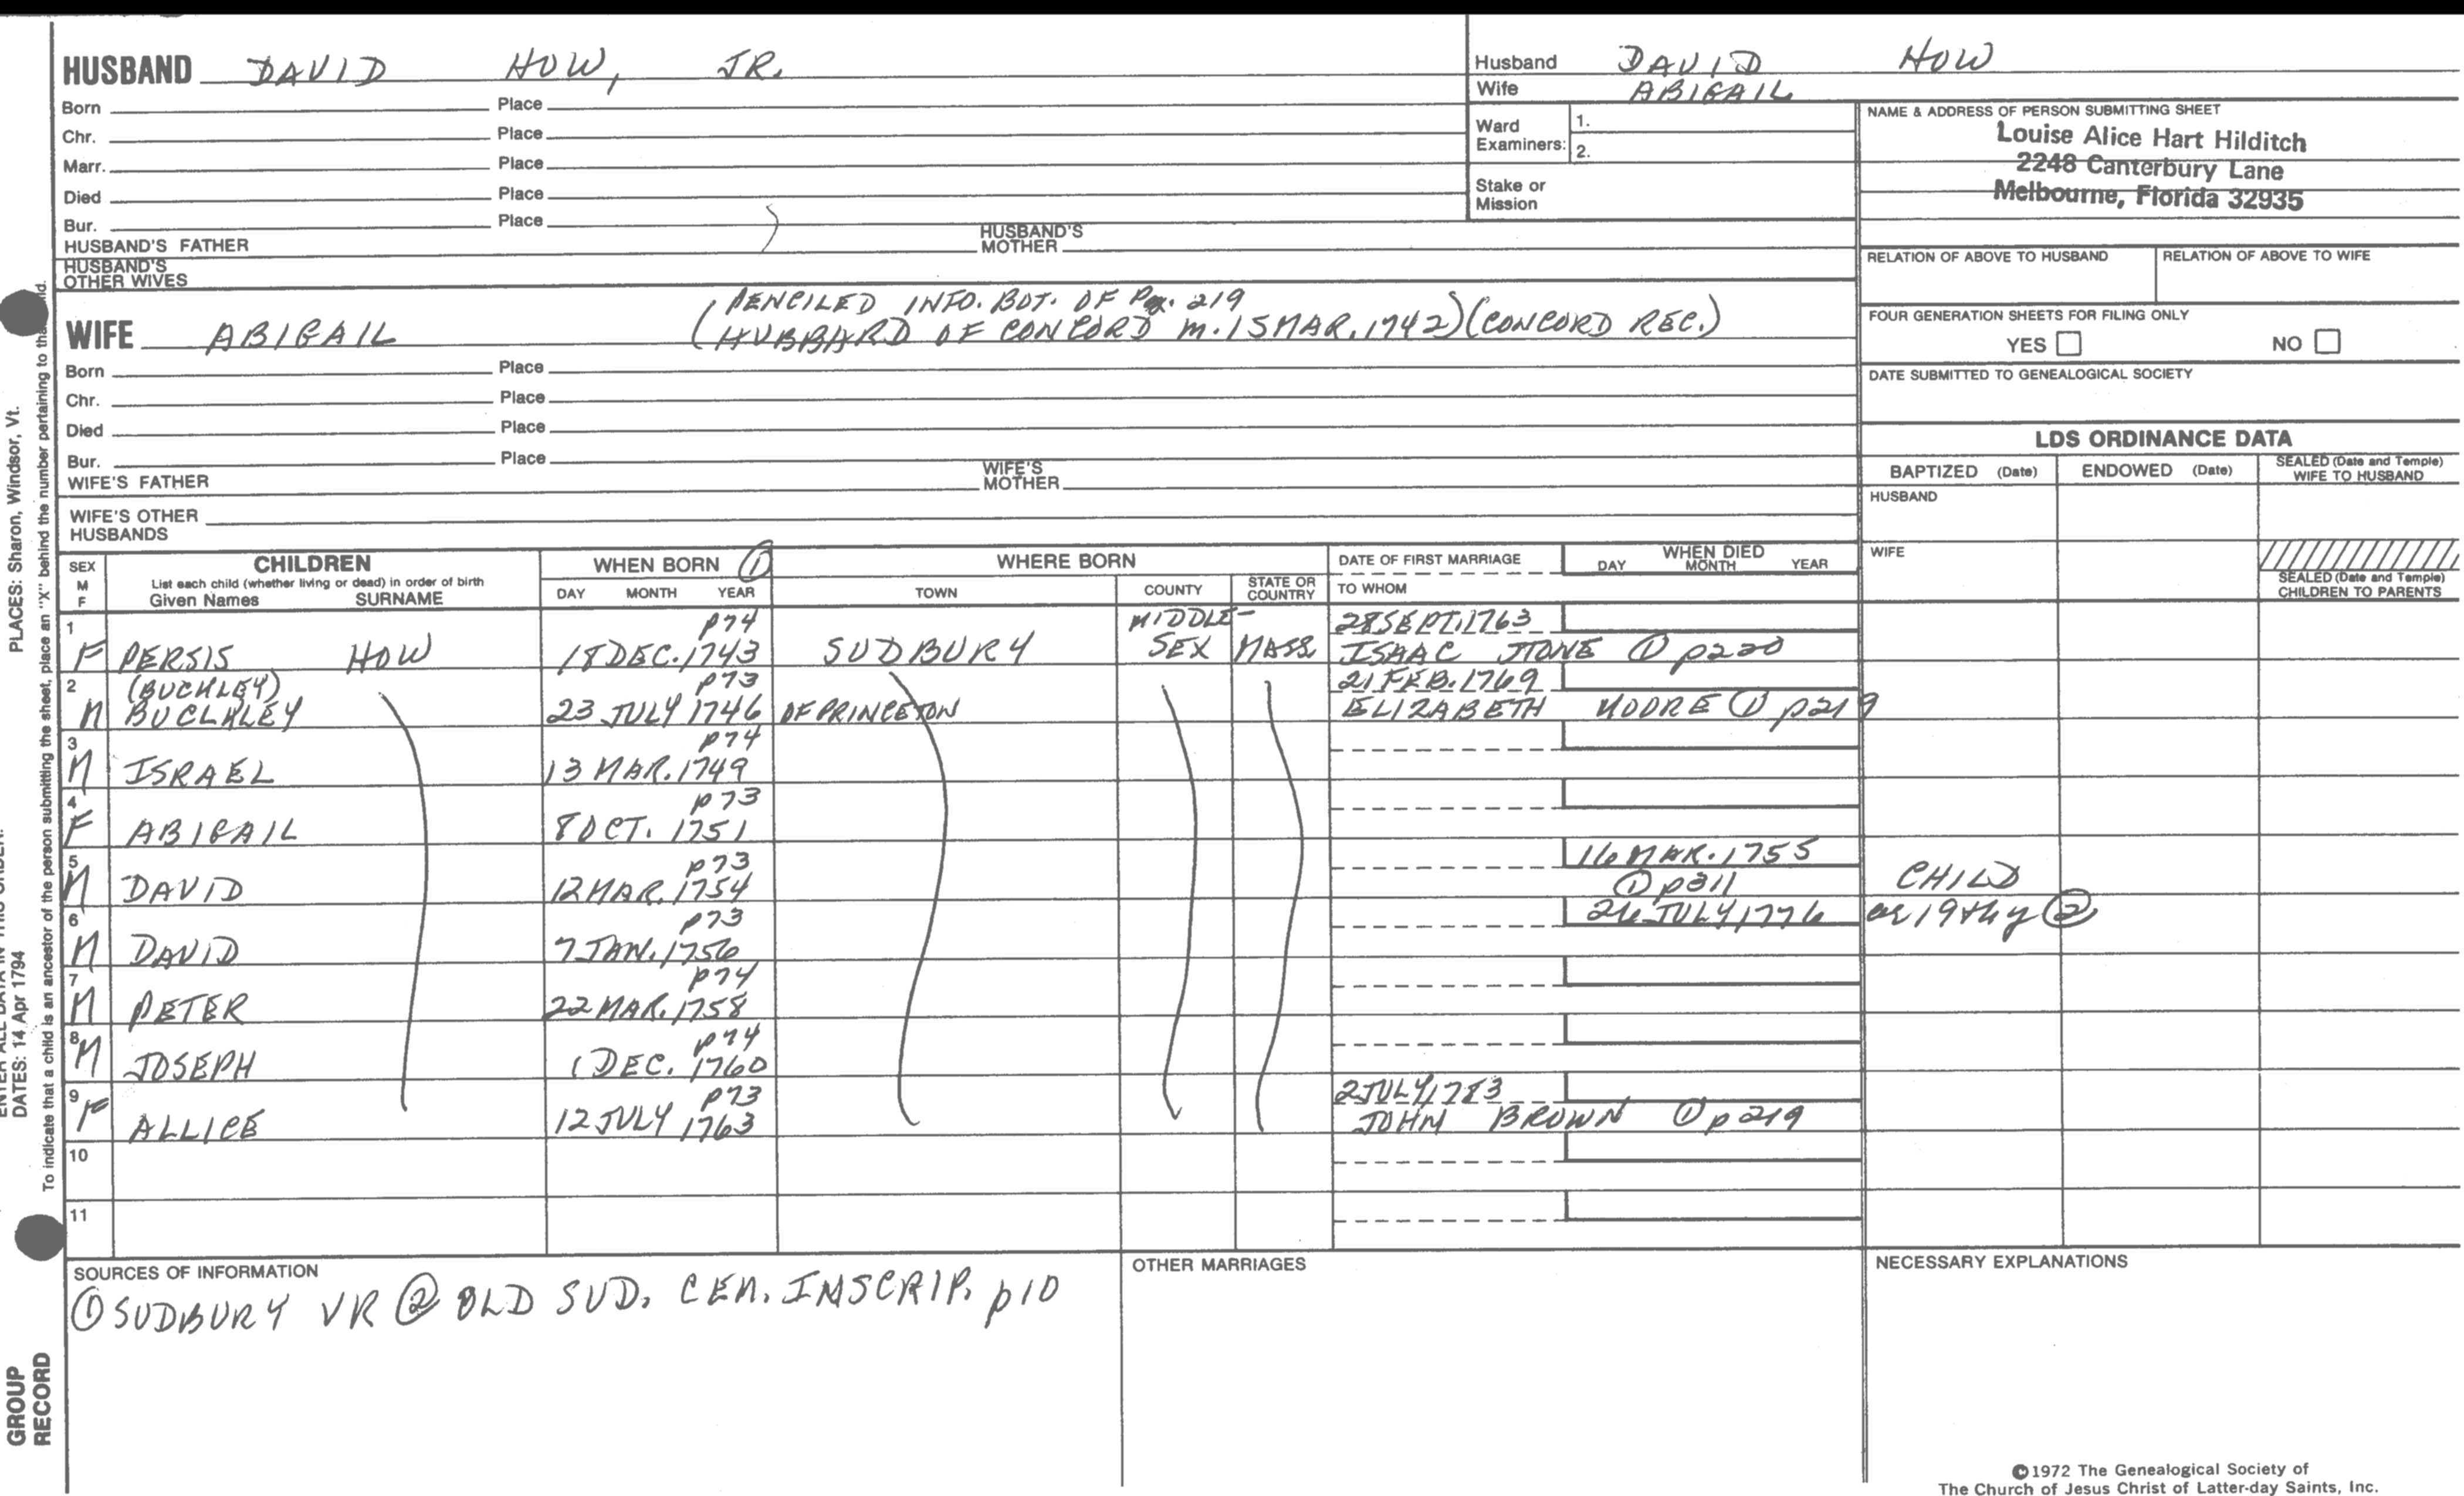 HUSBAND DAVID HOW, JR.
Born Place
Chr. Place
Marr. Place
Died Place
Bur. Place
HUSBAND'S FATHER HUSBAND'S MOTHER
HUSBAND'S OTHER WIVES
Husband DAVID HOW
Wife ABIGAIL
Ward Examiners: 1.
2.
Stake or Mission
NAME & ADDRESS OF PERSON SUBMITTING SHEET
Louise Alice Hart Hilditch
2248 Canterbury Lane
Melbourne, Florida 32935
RELATION OF ABOVE TO HUSBAND RELATION OF ABOVE TO WIFE
FOUR GENERATION SHEETS FOR FILING ONLY
YES NO
DATE SUBMITTED TO GENEALOGICAL SOCIETY
(PENCILED INFO. BOT. OF Pg. 219
WIFE ABIGAIL (HUBBARD OF CONCORD m. 15 MAR. 1742) (CONCORD REC.)
Born Place
Chr. Place
Died Place
Bur. Place
WIFE'S FATHER WIFE'S MOTHER
WIFE'S OTHER HUSBANDS
LDS ORDINANCE DATA
BAPTIZED (Date) ENDOWED (Date) SEALED (Date and Temple) WIFE TO HUSBAND
HUSBAND
WIFE
SEALED (Date and Temple) CHILDREN TO PARENTS
SEX M F
CHILDREN
List each child (whether living or dead) in order of birth
Given Names SURNAME
WHEN BORN ①
DAY MONTH YEAR
WHERE BORN
TOWN COUNTY STATE OR COUNTRY
DATE OF FIRST MARRIAGE
TO WHOM
WHEN DIED
DAY MONTH YEAR
1 p74 MIDDLE- 28 SEPT. 1763
F PERSIS HOW 18 DEC. 1743 SUDBURY SEX MASS. ISAAC STONE ① p220
2 (BUCHLEY) p73 21 FEB. 1769
M BUCLKLEY 23 JULY 1746 OF PRINCETON ELIZABETH MOORE ① p219
3 p74
M ISRAEL 13 MAR. 1749
4 p73
F ABIGAIL 8 OCT. 1751
5 p73 16 MAR. 1755
M DAVID 12 MAR. 1754 ① p311 CHILD
6 p73 26 JULY 1776 ae 19thy ②
M DAVID 7 JAN. 1756
7 p74
M PETER 22 MAR. 1758
8 p74
M JOSEPH 1 DEC. 1760
9 p73 2 JULY 1783
F ALLICE 12 JULY 1763 JOHN BROWN ① p219
10
11
SOURCES OF INFORMATION
① SUDBURY VR ② OLD SUD. CEM. INSCRIP. p10
OTHER MARRIAGES
NECESSARY EXPLANATIONS
©1972 The Genealogical Society of
The Church of Jesus Christ of Latter-day Saints, Inc.
PLACES: Sharon, Windsor, Vt.
DATES: 14 Apr 1794
To indicate that a child is an ancestor of the person submitting the sheet, place an "X" behind the number pertaining to that child.
GROUP
RECORD